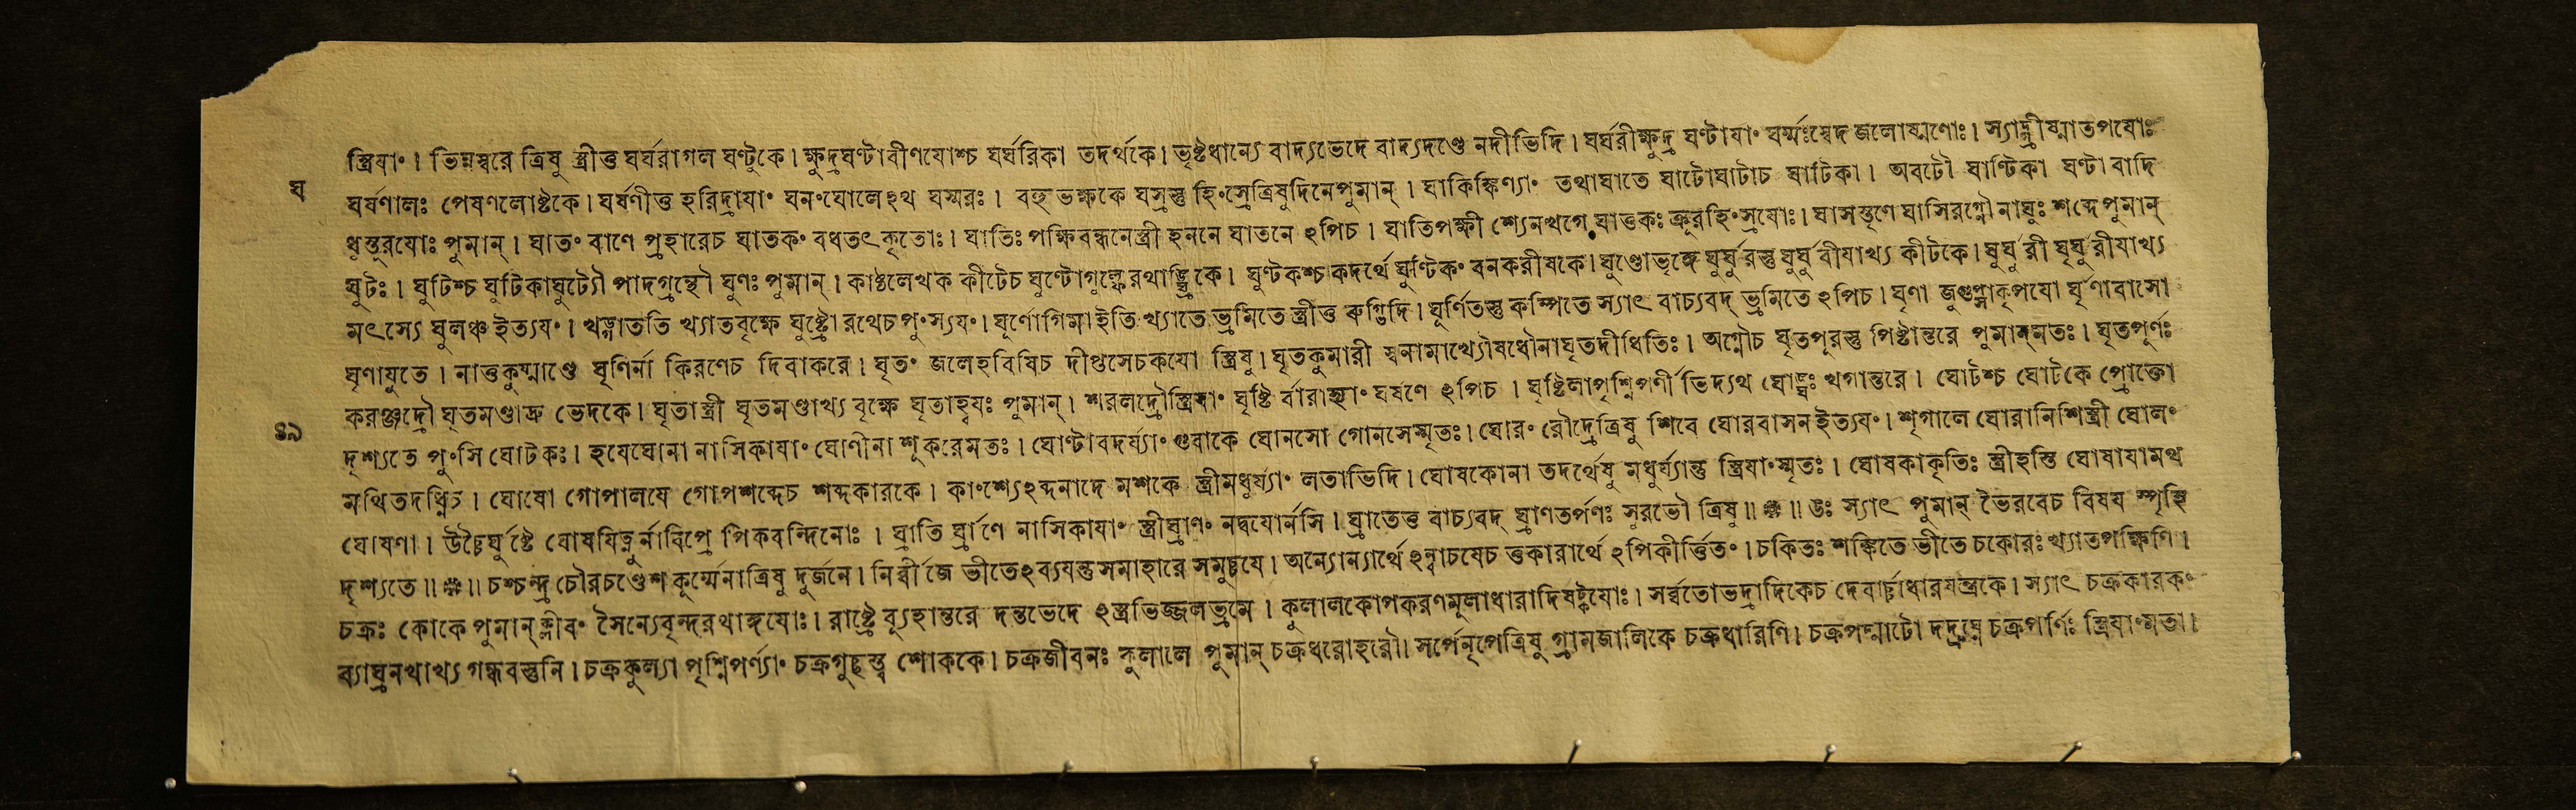 স্ত্রিযাং। ভিন্নস্বরে ত্রিষু স্ত্রীত্ত ঘর্ঘরাগল ঘণ্টুকে। ক্ষুদ্রঘণ্টাবীণযোশ্চ ঘর্ঘরিকা তদর্থকে। ভৃষ্টধান্যে বাদ্যভেদে বাদ্যদণ্ডে নদীভিদি। ঘর্ঘরীক্ষুদ্র ঘণ্টাযাং ঘর্ম্মঃস্বেদ জলোষ্মণোঃ।
ঘ
ঘর্ষণালঃ পেষণলোষ্টকে। ঘর্ষণীত্ত হরিদ্রাযাং ঘনংঘোলেঽথ ঘস্মরঃ। বহু ভক্ষকে ঘস্রস্তু হিংস্রেত্রিষুদিনেপুমান্। ঘাকিঙ্কিণ্যাং তথাঘাতে ঘাটোঘাটাচ ঘাটিকা। অবটৌ ঘাণ্টিকা ঘণ্টাবাদি
ধুস্তূরযোঃ পুমান্। ঘাতং বাণে প্রহারেচ ঘাতকং বধতৎকৃতোঃ। ঘাতিঃ পক্ষিবন্ধনেস্ত্রী হননে ঘাতনে ঽপিচ। ঘাতিপক্ষী শ্যেনখগে ঘাত্তকঃ ক্রূরহিংস্রযোঃ। ঘাসস্তৃণে ঘাসিরগ্নৌ নাঘুঃ শব্দে পুমান্
ঘুটঃ। ঘুটিশ্চ ঘুটিকাঘুট্যৌ পাদগ্রন্থৌ ঘুণঃ পুমান্। কাষ্ঠলেখক কীটেচ ঘুণ্টোগুল্ফেরথাঙ্ঘ্রিকে। ঘুণ্টকশ্চ কদর্থে ঘুণ্টিকং বনকরীষকে। ঘুণ্ডোভৃঙ্গে ঘুর্ঘুরস্তু ঘুর্ঘুরীযাখ্য কীটকে। ঘুর্ঘুরী ঘুর্ঘুরীযাখ্য
মৎস্যে ঘুলঞ্চ ইত্যযং। খ্যাতবৃক্ষে রথেচপুংস্যযং। ইতি খ্যাতে ভ্রমিতে স্ত্রীত্ত ঘূর্ণিতস্তু কম্পিতে স্যাৎ বাচ্যবদ্ ভ্রমিতে ঽপিচ। ঘৃণা জুগুপ্সাকৃপযো
ঘৃণাযুতে। নাত্তকুষ্মাণ্ডে ঘৃণির্না কিরণেচ দিবাকরে। ঘৃতং জলেহবিষিচ দীপ্তসেচকযো স্ত্রিষু। ঘৃতকুমারী স্বনামাখ্যৌষধৌনাঘৃতদীধিতিঃ। অগ্নৌচ ঘৃতপূরস্তু পিষ্টান্তরে পুমান্মতঃ। ঘৃতপূর্ণঃ
করঞ্জদ্রৌ ঘৃতমণ্ডাদ্রু ভেদকে। ঘৃতাস্ত্রী ঘৃতমণ্ডাখ্য বৃক্ষে ঘৃতাহ্বযঃ পুমান্। শরলদ্রৌস্ত্রিযাং ঘৃষ্টি র্বারাহ্যাং ঘর্ষণে ঽপিচ। ঘৃষ্টিলাপৃশ্নিপর্ণী ভিদ্যথ ঘোঙ্ঘঃ খগান্তরে। ঘোটশ্চ ঘোটকে প্রোক্তো
৪৯
দৃশ্যতে পুংসি ঘোটকঃ। হযেঘোনা নাসিকাযাং ঘোণীনা শূকরেমতঃ। ঘোণ্টাবদর্য্যাং গুবাকে ঘোনসো গোনসেস্মৃতঃ। ঘোরং রৌদ্রেত্রিষু শিবে ঘোরবাসনইত্যযং। শৃগালে ঘোরানিশিস্ত্রী ঘোলং
মথিতদধ্নিচ। ঘোষো গোপালযে গোপশব্দেচ শব্দকারকে। কাংশ্যেঽব্দনাদে মশকে স্ত্রীমধুর্য্যাং লতাভিদি। ঘোষকোনা তদর্থেষু মধুর্য্যান্তু স্ত্রিযাংস্মৃতঃ। ঘোষকাকৃতিঃ স্ত্রীহস্তি ঘোষাযামথ
ঘোষণা। উচ্চৈর্ঘুষ্টে ঘোষযিত্নুর্নাবিপ্রে পিকবন্দিনোঃ। ঘ্রাতি র্ঘ্রাণে নাসিকাযাং স্ত্রীঘ্রাণং নদ্বযোর্নসি। ঘ্রাতেত্ত বাচ্যবদ্ ঘ্রাণতর্পণঃ সুরভৌ ত্রিষু॥ ॥ ঙঃ স্যাৎ পুমান্ ভৈরবেচ বিষয
দৃশ্যতে॥ ॥ চশ্চন্দ্র চৌরচণ্ডেশ কূর্ম্মেনাত্রিষু দুর্জনে। নির্ব্বীজে ভীতেঽব্যযন্তুসমাহারে সমুচ্চযে। অন্যোন্যার্থে ঽন্বাচযেচ ত্তকারার্থে ঽপিকীর্ত্তিতং। চকিতঃ শঙ্কিতে ভীতে চকোরঃ খ্যাতপক্ষিণি।
চক্রঃ কোকে পুমান্ক্লীবং সৈন্যেবৃন্দরথাঙ্গযোঃ। রাষ্ট্রে ব্যূহান্তরে দন্তভেদে ঽস্ত্রভিজ্জলভ্রমে। কুলালকোপকরণমূলাধারাদিষট্কযোঃ। সর্ব্বতোভদ্রাদিকেচ দেবার্চ্চাধারযন্ত্রকে। স্যাৎ চক্রকারকং
ব্যাঘ্রনখাখ্য গন্ধবস্তুনি। চক্রকুল্যা পৃশ্নিপর্ণ্যাং চক্রগুচ্ছস্ত্ব শোককে। চক্রজীবনঃ কুলালে পুমান্ চক্রধরোহরৌ। সর্পেনৃপেত্রিষু গ্রামজালিকে চক্রধারিণি। চক্রপদ্মাটো দদ্রুঘ্নে চক্রপর্ণিঃ স্ত্রিযাংমতা।